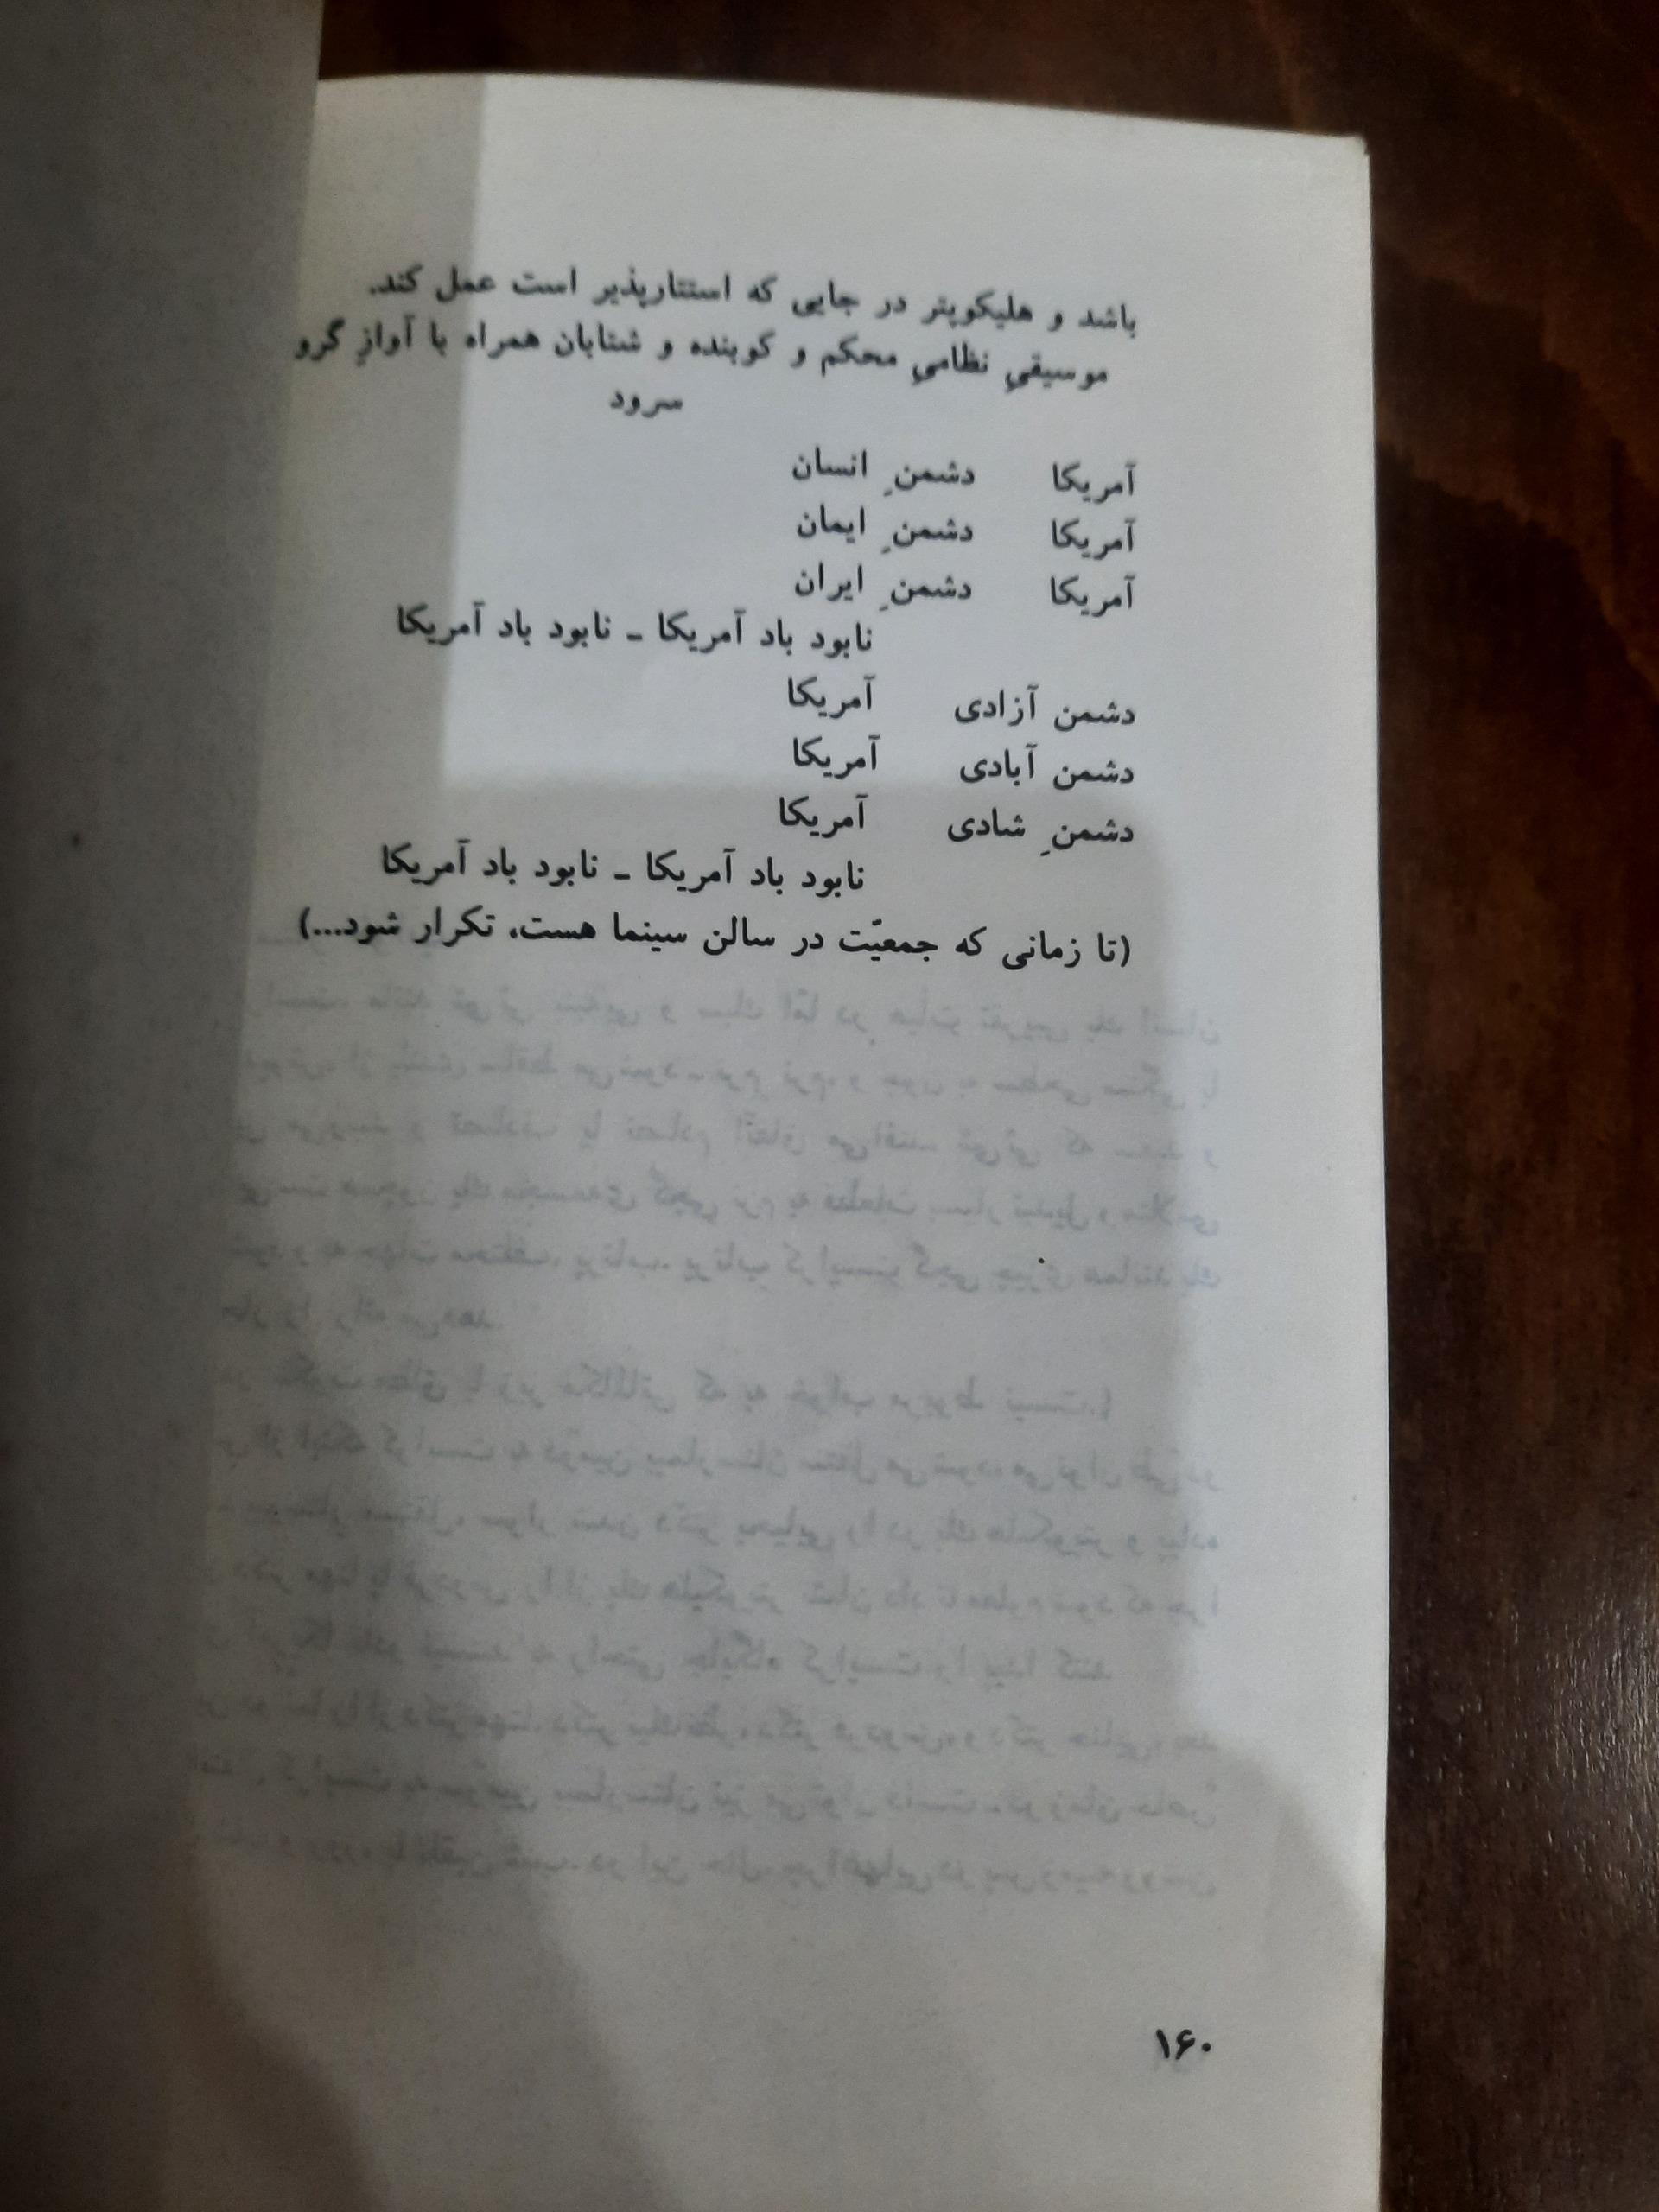 باشد و هلیکوپتر در جایی که استتارپذیر است عمل کند.
موسیقیِ نظامیِ محکم و کوبنده و شتابان همراه با آوازِ گرو
سرود
آمریکا دشمنِ انسان
آمریکا دشمنِ ایمان
آمریکا دشمنِ ایران
نابود باد آمریکا ـ نابود باد آمریکا
دشمن آزادی آمریکا
دشمن آبادی آمریکا
دشمنِ شادی آمریکا
نابود باد آمریکا ـ نابود باد آمریکا
(تا زمانی که جمعیّت در سالن سینما هست، تکرار شود...)
۱۶۰